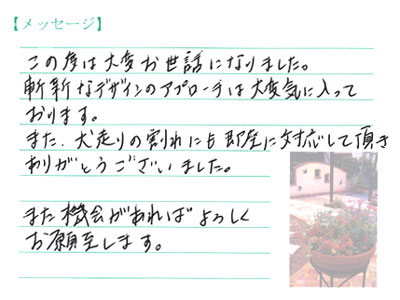 【メッセージ】
この度は大変お世話になりました。
斬新なデザインのアプローチは大変気に入って
おります。
また、犬走りの割れにも即座に対応して頂き
ありがとうございました。
また機会があればよろしく
お願い致します。